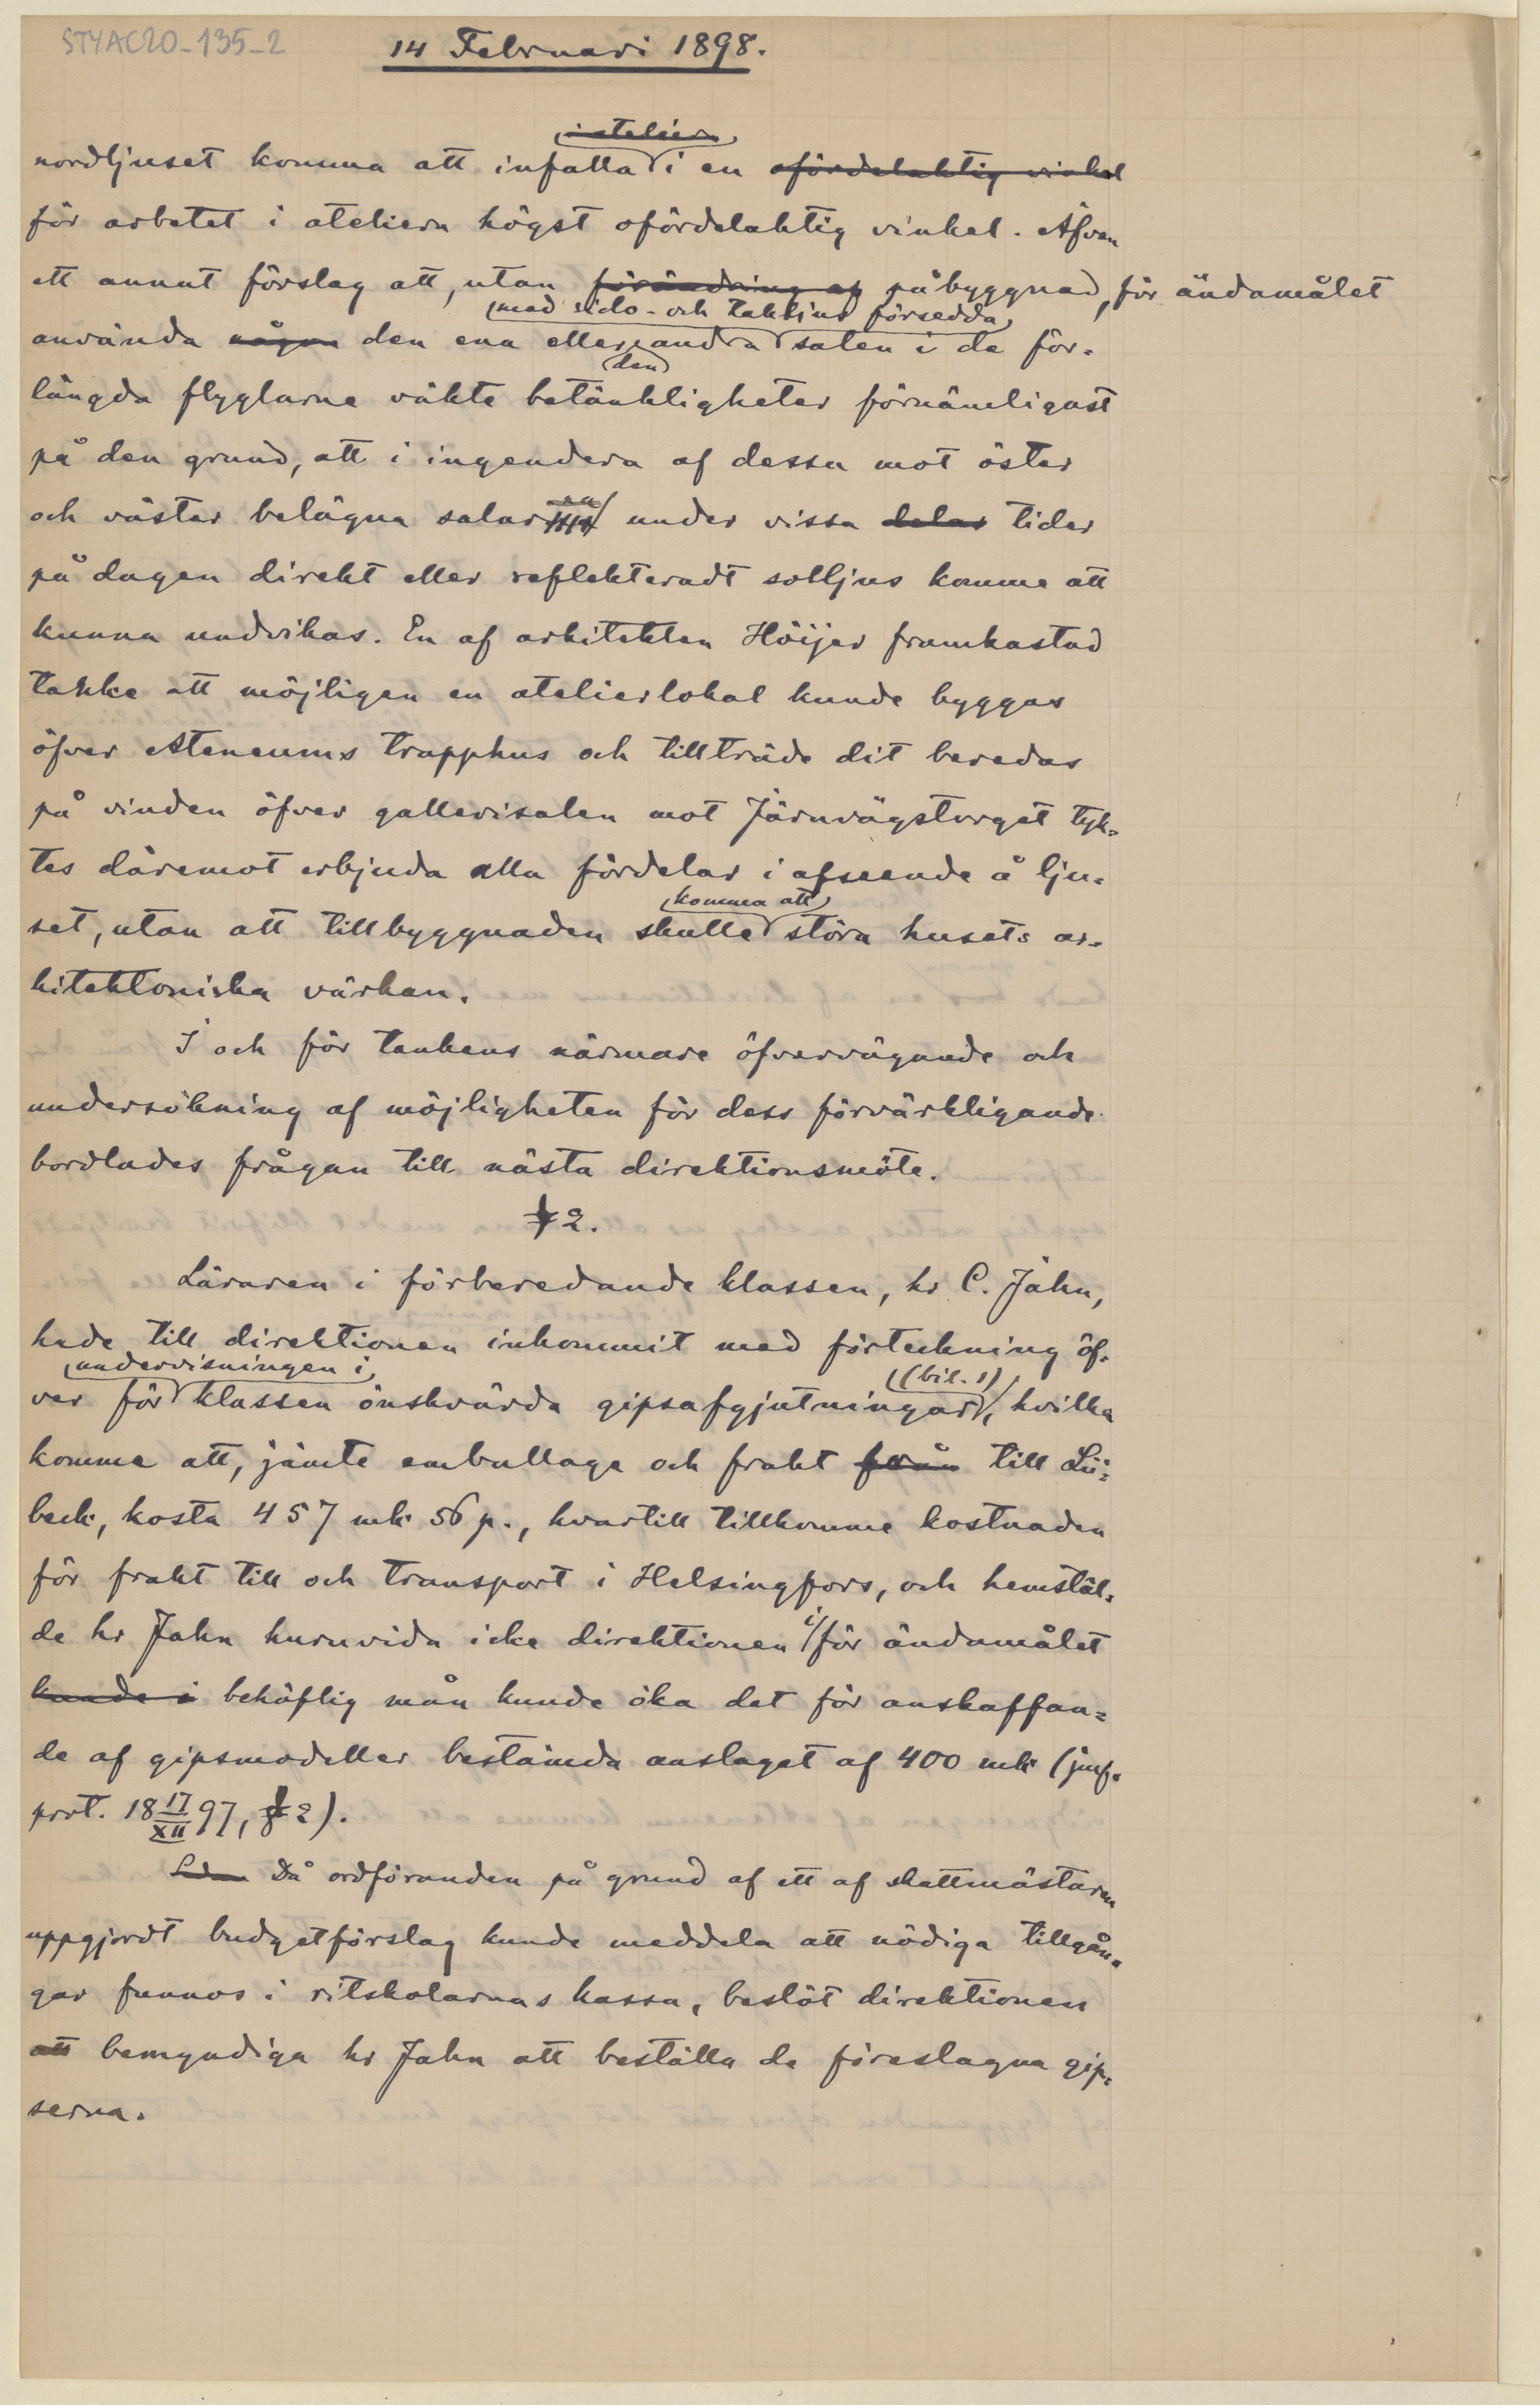 STYAC20_135_2
14 Februari 1898.
i atelier
nordljuset komma att infalla i en ofördelaktig vinkel
för arbetet i ateliern högst ofördelaktig vinkel. Äfven
ett annat förslag att, utan förändring af påbyggnad, för ändamålet
med sido- och takljus försedda
använda någon den ena eller andra salen i de för-
den
längda flyglarne väkte betänkligheter förnämligast
på den grund, att i ingendera af dessa mot öster
och väster belägna salar under vissa delar tider
på dagen direkt eller reflekteradt solljus komme att
kunna undvikas. En af arkitekten Höijer framkastad
tanke att möjligen en atelierlokal kunde byggas
öfver Ateneums trapphus och tillträde dit beredas
på vinden öfver gallerisalen mot Järnvägstorget tyk-
tes däremot erbjuda alla fördelar i afseende å lju-
komma att
set, utan att tillbyggnaden skulle störa husets ar-
kitektoniska värkan.
I och för tankens närmare öfvervägande och
undersökning af möjligheten för dess förvärkligande
bordlades frågan till nästa direktionsmöte.
§ 2.
Läraren i förberedande klassen, hr C. Jahn,
hade till direktionen inkommit med förteckning öf-
undervisningen i
(bil. 1)
ver för klassen önskvärda gipsafgjutningar, hvilka
komme att, jämte emballage och frakt från till Lü-
beck, kosta 457 mk 56 p., hvartill tillkomme kostnaden
för frakt till och transport i Helsingfors, och hemstäl-
de hr Jahn huruvida icke direktionen i för ändamålet
kunde i behöflig mån kunde öka det för anskaffan-
de af gipsmodeller bestämda anslaget af 400 mk (jmf.
prot. 18 17/XII 97, § 2).
Då ordföranden på grund af ett af skattmästaren
uppgjordt budgetförslag kunde meddela att nödiga tillgån-
gar funnos i ritskolarnas kassa, beslöt direktionen
att bemyndiga hr Jahn att beställa de föreslagna gip-
serna.